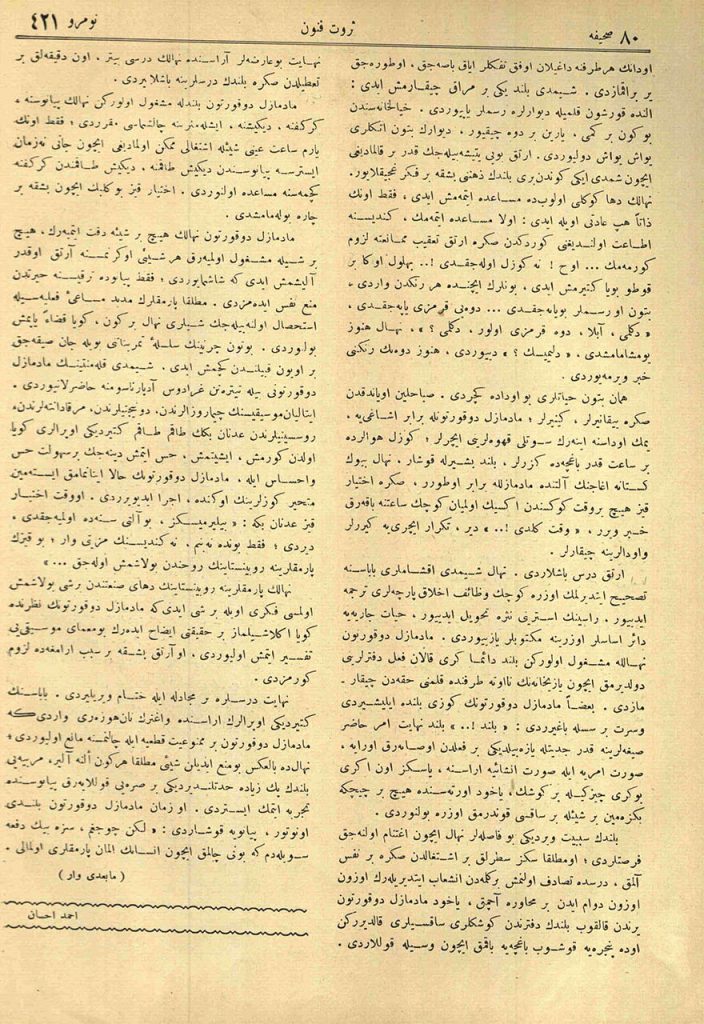 ٨٠ صحیفه
ثروت فنون
نومرو ٤٢١
اودانك هرطرفنه داغیلان اوفق تفكلر ایاق باصه‌جق ، اوطوره‌جق
یر براقمازدی . شیمدی بلند یكی بر مراق چیقارمش ایدی :
النده قورشون قلمیله دیوارلره رسملر یاپیوردی . خیالخانه‌سندن
بوكون بر كمی ، یارین بر دوه چیقیور ، دیوارك بتون اتكلری
یواش یواش دولیوردی . ارتق بویی یتیشه‌بیله‌جك قدر بر قالمادیغی
ایچون شمدی ایكی كوندن‌بری بلندك ذهنی بشقه بر فكر غجیقلایور.
نهالك دها كوكلی اولوب‌ده مساعده ایتمه‌مش ایدی ، فقط اونك
ذاتاً هپ عادتی اویله ایدی : اولا مساعده ایتمه‌مك ، كندیسنه
اطاعت اولندیغنی كوردكدن صكره ارتق تعقیب ممانعته لزوم
كورمه‌مك ... اوح ! نه كوزل اوله‌جقدی !.. بهلول اوكا بر
قوطو بویا كتیرمش ایدی ، بونلرك ایچنده هر رنكدن واردی ،
بتون اورسملر بویانه‌جقدی ... دوه‌یی قرمزی یاپه‌جقدی ،
« دكلمی ، آبلا ، دوه قرمزی اولور ، دكلمی ؟ » ، نهال هنوز
یومشامامشدی ، « دلیمیسك ؟ » دییوردی ، هنوز دوه‌نك رنكنی
خبر ویرمه‌یوردی .
همان بتون حیاتلری بو اوداده كچردی . صباحلین اویاندقدن
صكره ییقانیرلر ، كینیرلر ؛ مادمازل دوقورتونله برابر اشاغی‌یه ،
یمك اوداسنه اینه‌رك سوتلی قهوه‌لرینی ایچرلر ؛ كوزل هوالرده
بر ساعت قدر باغچه‌ده كزرلر ، بلند بشیرله قوشار . نهال بیوك
كستانه اغاجنك آلتنده مادمازلله برابر اوطورر ، صكره اختیار
قیز هیچ بروقت كوكسندن اكسیك اولمیان كوچك ساعتنه باقه‌رق
خبر ویرر ، « وقت كلدی !.. » دیر ، تكرار ایچری‌یه كیررلر
واودالرینه چیقارلر .
ارتق درس باشلاردی . نهال شیمدی اقشاملری باباسنه
تصحیح ایتدیرلمك اوزره كوچك وظائف اخلاق پارچه‌لری ترجمه
ایدییور ، راسینك استرینی نثره تحویل ایدییور ، حیات جاریه‌یه
دائر اساسلر اوزرینه مكتوبلر یازییوردی . مادمازل دوقورتون
نهالله مشغول اولوركن بلند دائما كری قالان فعل دفترلرینی
دولدیرمق ایچون یازیخانه‌نك تااوته طرفنده قلمنی حقه‌دن چیقار ـ
مازدی . بعضاً مادمازل دوقورتونك كوزی بلنده ایلیشیردی
وسرت بر سسله باغیرردی : « بلند !.. » بلند نهایت امر حاضر
صیغه‌لرینه قدر جدیتله یازه‌بیلدیكی بر فعلدن اوصانه‌رق اورایه ،
صورت امریه ایله صورت انشائیه اراسنه ، یاسكز اون اكری
بوكری چیزكیله بر كوشك ، یاخود اورته‌سنده هیچ بر چیچكه
بكزه‌مین بر شیئله بر ساقسی قوندرمق اوزره بولنوردی .
بلندك سببیت ویردیكی بو فاصله‌لر نهال ایچون اغتنام اولنه‌جق
فرصتلردی ؛ اومطلقا سكز سطرلق بر اشتغالدن صكره بر نفس
آلمق ، درسده تصادف اولنمش بركمه‌دن انشعاب ایتدیریله‌رك اوزون
اوزون دوام ایدن بر محاوره آچمق ، یاخود مادمازل دوقورتون
یرندن قالقوب بلندك دفترندن كوشكلری ساقسیلری قالدیرركن
اوده پنجره‌یه قوشوب باغچه‌یه باقمق ایچون وسیله قوللاردی .
نهایت بوعارضه‌لر آراسنده نهالك درسی بیتر ، اون دقیقه‌لق بر
تعطیلدن صكره بلندك درسلرینه باشلانیردی .
مادمازل دوقورتون بلندله مشغول اولوركن نهالك پیانوسنه ،
كركفنه ، دیكیشنه ، ایشله‌مه‌لرینه چالشماسی مقرردی ؛ فقط اونك
یارم ساعت عینی شیئله اشتغالی ممكن اولمادیغی ایچون جانی نه‌زمان
ایسترسه پیانوسندن دیكیش طاقمنه ، دیكیش طاقمندن كركفنه
كچمه‌سنه مساعده اولنوردی . اختیار قیز بوكابك ایچون بشقه بر
چاره بوله‌مامشدی .
مادمازل دوقورتون نهالك هیچ بر شیئه دقت ایتمیه‌رك ، هیچ
بر شیله مشغول اولمیه‌رق هر شیئی اوكرنمسنه آرتق اوقدر
آلیشمش ایدی كه شاشمایوردی ؛ فقط پیانوده ترقیسنه حیرتدن
منع نفس ایده‌مزدی . مطلقا پارمقلرك مدید مساعیٔ فعلیه‌سیله
استحصال اولنه‌بیله‌جك شیلری نهال بر كون ، كویا قضاءً یاپمش
بولنوردی . بوتون چرنینك سلسلهٔ تمریناتنی بویله جان صیقه‌جق
بر اویون قبیلندن كچمش ایدی . شیمدی قله‌منتینك مادمازل
دوقورتونی بیله تیتره‌تن غرادوس آدپارناسومنه حاضرلانیوردی .
ایتالیان‌موسیقیسنك چیماروزالرندن، دونیچتیلرندن، مرقادانته‌لرندن،
روسینیلرندن عدنان بكك طاقم طاقم كتیردیكی اوپرالری كویا
اولدن كورمش ، ایشیتمش ، حس ایتمش دینه‌جك برسهولت حس
واحساس ایله ، مادمازل دوقورتونك حالا اینانمامق ایسته‌مین
متحیر كوزلرینك اوكنده ، اجرا ایدیویرردی . اووقت اختیار
قیز عدنان بكه : « بیلیرمیسكز ، بو آلتی سنه‌ده اولمیه‌جقدی .
دیردی ؛ فقط بونده نه‌بنم . نه كندیسنك مزیتی وار ؛ بو قیزك
پارمقلرینه روبینستاینك روحندن بولاشمش اوله‌جق ... »
نهالك پارمقلرینه روبینستاینك دهای صنعتندن برشی بولاشمش
اولمسی فكری اویله بر شی ایدی كه مادمازل دوقورتونك نظرنده
كویا اكلاشیلماز بر حقیقتی ایضاح ایده‌رك بومعمای موسیقی‌یی
تفسیر ایتمش اولیوردی ، او آرتق بشقه بر سبب ارامغه‌ده لزوم
كورمزدی .
نهایت درسلره بر مجادله ایله ختام ویریلیردی . باباسنك
كتیردیكی اوپرالرك اراسنده واغنرك تان‌هوزه‌ری واردی كه
مادمازل دوقورتون بر ممنوعیت قطعیه ایله چالنمسنه مانع اولیوردی ؛
نهال‌ده بالعكس بومنع ایدیلن شیئی مطلقا هركون ألنه آلیر، مربیه‌یی
بلندك پك زیاده حدتلندیردیكی بر صره‌یی قوللایه‌رق پیانوسنده
تجربه ایتمك ایستردی . او زمان مادمازل دوقورتون بلندی
اونوتور ، پیانویه قوشاردی : « لكن چوجغم ، سزه بیك دفعه
سویله‌دم كه بونی چالمق ایچون انسانك المان پارمقلری اولمالی .
( مابعدی وار )
احمد احسان